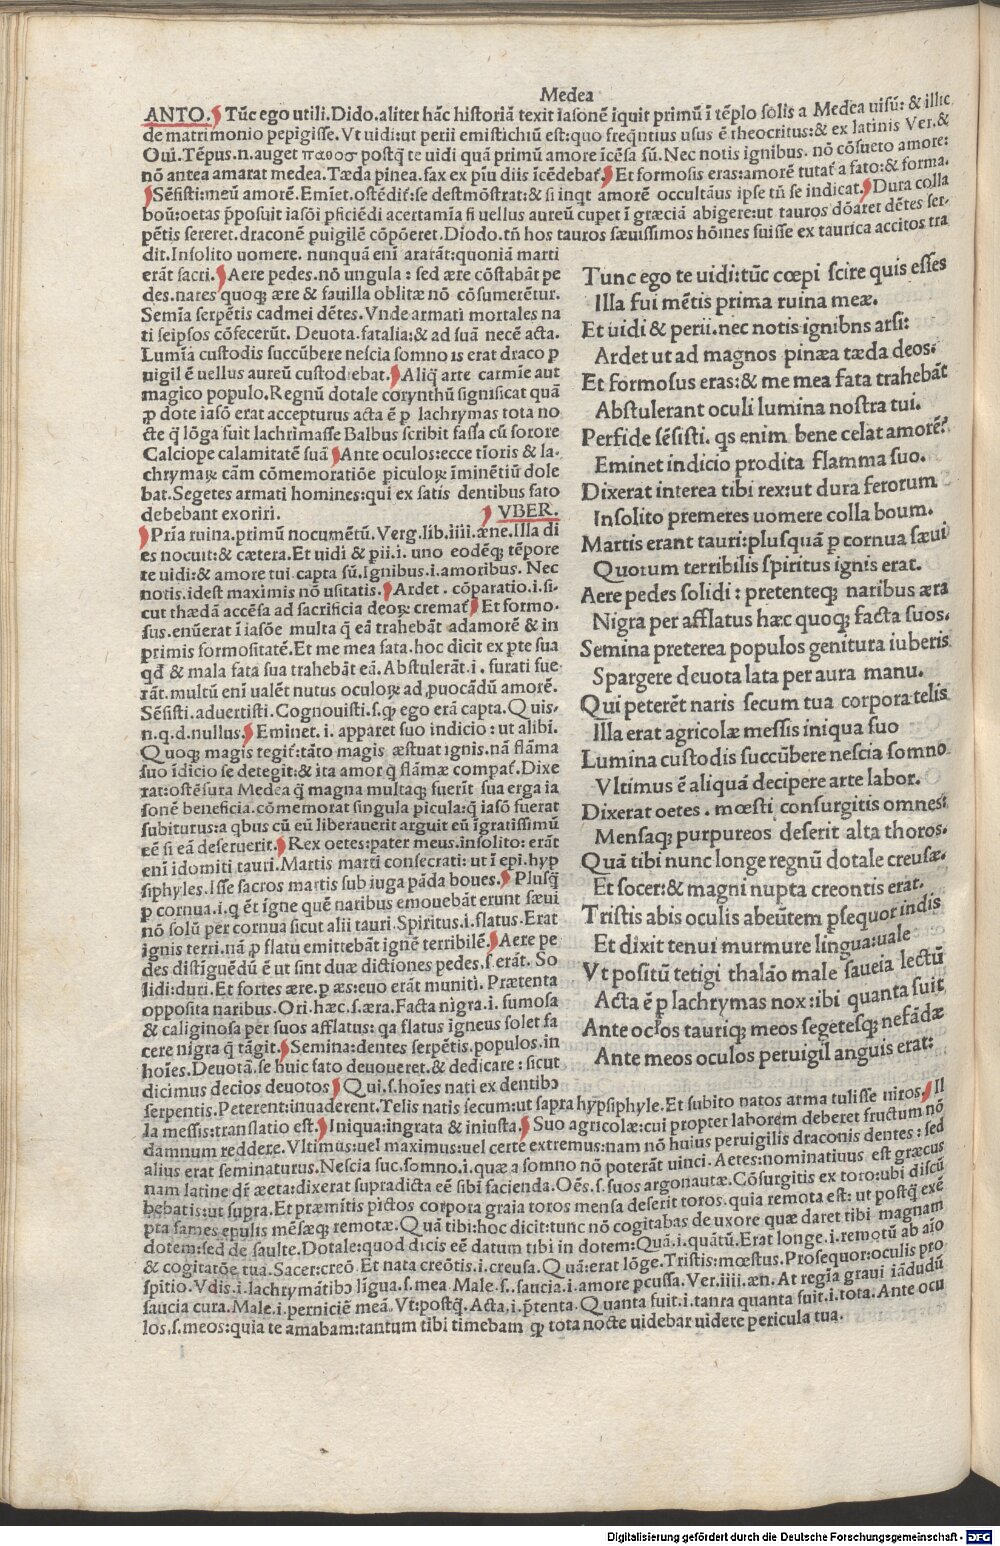 Medea
ANTO. Tūc ego utili. Dido. aliter hāc historiā texit iasonē iquit primū ī tēplo solis a Medea uisū: & illic
de matrimonio pepigisse. Vt uidi: ut perii emistichiū est: quo freqntius usus ē theocritus: & ex latinis Ver. &
Oui. Tēpus. n. auget παθοσ postq̄ te uidi quā primū amore icēsa sū. Nec notis ignibus. nō cōsueto amore:
nō antea amarat medea. Tæda pinea. fax ex pīu diis icēdebat. Et formosis eras: amorē tutat̄ a fato: & forma.
Sēsisti: meū amorē. Emīet. ostēdit̄: se destmōstrat: & si inqt amorē occultāus ipse tn̄ se indicat. Dura colla
boū: oetas p̄posuit iasōi pficiēdi acertamīa si uellus aureū cupet ī græciā abigere: ut tauros dōaret dētes ser-
pētis sereret. draconē puigilē cōpōeret. Diodo. tn̄ hos tauros sæuissimos hōines fuisse ex taurica accitos tra
dit. Insolito uomere. nunquā enī ararāt: quoniā marti
erāt sacri. Aere pedes. nō ungula: sed ære cōstabāt pe
des. nares quoq; ære & fauilla oblitæ nō cōsumerētur.
Semīa serpētis cadmei dētes. Vnde armati mortales na
ti seipsos cōfecerūt. Deuota. fatalia: & ad suā necē acta.
Lumīa custodis succūbere nescia somno is erat draco p
uigil ē uellus aureū custodiebat. Aliq̄ arte carmīe aut
magico populo. Regnū dotale corynthū significat quā
p dote iasō erat accepturus acta ē p lachrymas tota no
cte q̄ lōga fuit lachrimasse Balbus scribit fassa cū sorore
Calciope calamitatē suā Ante oculos: ecce tioris & la-
chrymaꝝ cām cōmemoratiōe piculoꝝ īminētiū dole
bat. Segetes armati homines: qui ex satis dentibus fato
debebant exoriri. VBER.
Pria ruina. primū nocumētū. Verg. lib. iiii. æne. Illa di
es nocuit: & cætera. Et uidi & pii. i. uno eodēq; tēpore
te uidi: & amore tui capta sū. Ignibus. i. amoribus. Nec
notis. idest maximis nō usitatis. Ardet. cōparatio. i. si-
cut thædā accēsa ad sacrificia deoꝝ cremat̄ Et formo-
sus. enūerat ī iasōe multa q̄ eā trahebāt ad amorē & in
primis formositatē. Et me mea fata. hoc dicit ex pte sua
qđ & mala fata sua trahebāt eā. Abstulerāt. i. furati fue
rāt. multū enī ualēt nutus oculoꝝ ad puocādū amorē.
Sēsisti. aduertisti. Cognouisti. s. q; ego erā capta. Quis-
n. q. d. nullus. Eminet. i. apparet suo indicio: ut alibi.
Quoq; magis tegit̄: tāto magis æstuat ignis. nā flāma
suo īdicio se detegit: & ita amor q̄ flāmæ compat̄. Dixe
rat: ostēsura Medea q̄ magna multaq; fuerīt sua erga ia
sonē beneficia. cōmemorat singula picula: q̄ iasō fuerat
subiturus: a qbus cū eū liberauerit arguit eū īgratissimū
eē si eā deseruerit. Rex oetes: pater meus. insolito: erāt
enī idomiti tauri. Martis marti consecrati: ut ī epi. hyp
siphyles. Isse sacros martis sub iuga pāda boues. Plusq̄
p cornua. i. q ēt īgne quē naribus emouebāt erunt sæui
nō solū per cornua sicut alii tauri. Spiritus. i. flatus. Erat
ignis terri. nā p flatu emittebāt ignē terribilē. Aere pe
des distiguēdū ē ut sint duæ dictiones pedes. s. erāt. So
lidi: duri. Et fortes ære. p æs: euo erāt muniti. Prætenta
opposita naribus. Ori. hæc. s. æra. Facta nigra. i. fumosa
& caliginosa per suos afflatus: qa flatus igneus solet fa
cere nigra q̄ tāgit. Semina: dentes serpētis. populos. in
hoīes. Deuotā. se huic fato deuoueret. & dedicare: sicut
dicimus decios deuotos Qui. s. hoīes nati ex dentibꝫ
serpentis. Peterent: inuaderent. Telis natis secum: ut sapra hypsiphyle. Et subito natos arma tulisse niros. Il
la messis: translatio est. Iniqua: ingrata & iniusta. Suo agricolæ: cui propter laborem deberet fructum nō
damnum reddere. Vltimus: uel maximus: uel certe extremus: nam nō huius peruigilis draconis dentes: sed
alius erat seminaturus. Nescia suc. somno. i. quæ a somno nō poterāt uinci. Aetes: nominatiuus est græcus
nam latine dr̄ æeta: dixerat supradicta eē sibi facienda. Oēs. s. suos argonautæ. Cōsurgitis ex toro: ubi discū
bebatis: ut supra. Et præmitis pictos corpora graia toros mensa deserit toros. quia remota est: ut postq̄ exē
pta fames epulis mēsæq; remotæ. Quā tibi: hoc dicit: tunc nō cogitabas de uxore quæ daret tibi magnam
dotem: sed de saulte. Dotale: quod dicis eē datum tibi in dotem: Quā. i. quātū. Erat longe. i. remotū ab aīo
& cogitatōe tua. Sacer: creō. Et nata creōtis. i. creusa. Quā: erat lōge. Tristis: mœstus. Prosequor: oculis pro
spitio. Vdis. i. lachrymātibꝫ līgua. s. mea Male. s. saucia. i. amore pcussa. Ver. iiii. æn. At regīa graui iādudū
saucia cura. Male. i. perniciē meā. Vt: postq̄. Acta, i. p̄tenta. Quanta fuit. i. tanra quanta fuit. i. tota. Ante ocu
los. s. meos: quia te amabam: tantum tibi timebam q; tota nocte uidebar uidere pericula tua.
Tunc ego te uidi: tūc cœpi scire quis esses
Illa fui mētis prima ruina meæ.
Et uidi & perii. nec notis ignibns arsi:
Ardet ut ad magnos pinæa tæda deos.
Et formosus eras: & me mea fata trahebāt
Abstulerant oculi lumina nostra tui.
Perfide sēsisti. qs enim bene celat amorē?
Eminet indicio prodita flamma suo.
Dixerat interea tibi rex: ut dura ferorum
Insolito premeres uomere colla boum.
Martis erant tauri: plusquā p cornua sæui
Quorum terribilis spiritus ignis erat.
Aere pedes solidi: pretenteq; naribus æra
Nigra per afflatus hæc quoq; facta suos.
Semina preterea populos genitura iuberis
Spargere deuota lata per aura manu.
Qui peterēt naris secum tua corpora telis
Illa erat agricolæ messis iniqua suo
Lumina custodis succūbere nescia somno
Vltimus ē aliquā decipere arte labor.
Dixerat oetes. mœsti consurgitis omnes:
Mensaq; purpureos deserit alta thoros.
Quā tibi nunc longe regnū dotale creusæ.
Et socer: & magni nupta creontis erat.
Tristis abis oculis abeūtem psequor indis
Et dixit tenui murmure lingua: uale
Vt positū tetigi thalāo male saueia lectū
Acta ē p lachrymas nox: ibi quanta fuit
Ante oclos tauriq; meos segetesq; nefādæ
Ante meos oculos peruigil anguis erat:
Digitalisierung gefördert durch die Deutsche Forschungsgemeinschaft - DFG